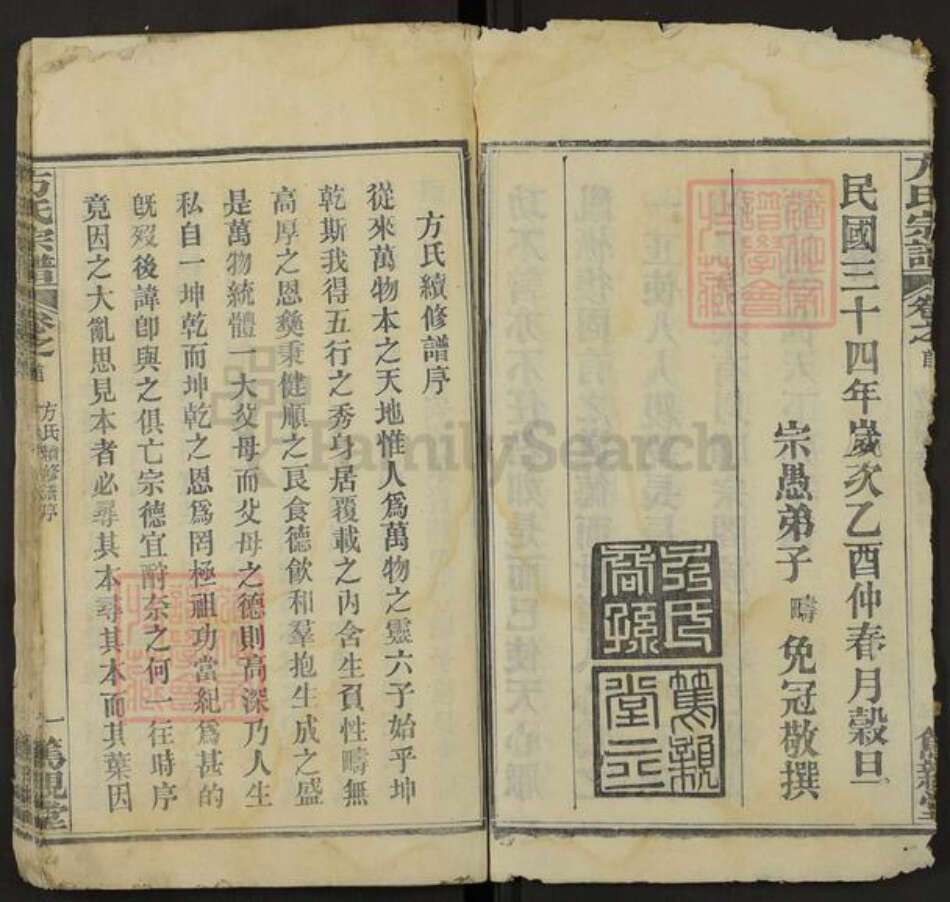 民國三十四年歲次乙酉仲春月穀旦
宗愚弟子 疇 免冠敬撰
篤親堂
方氏宗譜 卷之首
方氏續修譜序
從來萬物本之天地惟人爲萬物之靈六子始乎坤
乾斯我得五行之秀身居覆載之內含生負性疇無
高厚之恩彜秉健順之良食德飮和羣抱生成之盛
是萬物統體一大父母而父母之德則高深乃人生
私自一坤乾而坤乾之恩爲罔極祖功當紀爲甚的
旣歿後諱卽與之俱亡宗德宜酧奈之何一往時序
竟因之大亂思見本者必尋其本尋其本而其葉因
方氏宗譜 卷之首 方氏續修譜序 一 篤親堂
FamilySearch